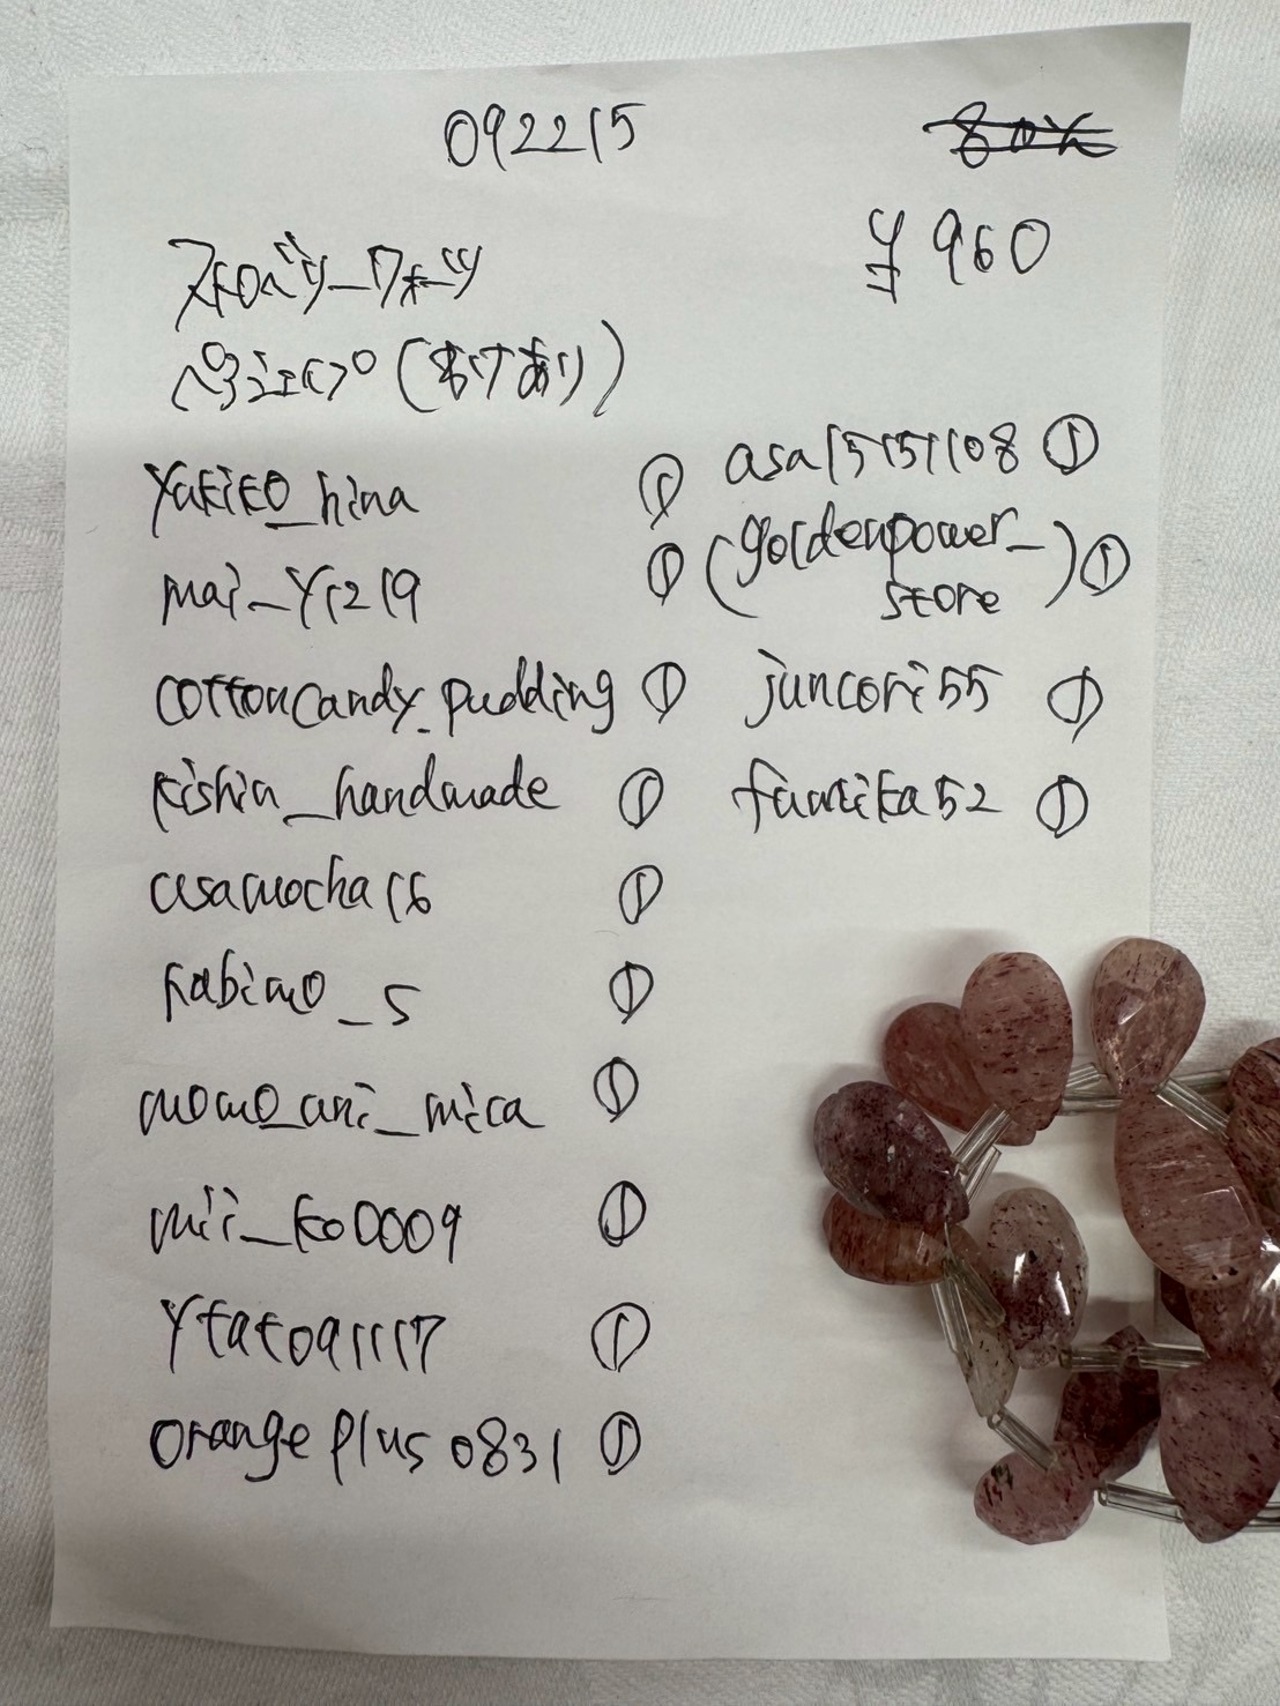 092215
80%
¥960
ストロベリークォーツ
ペアシェイプ(あけあり)
yukiko_hina ①
mai_y1219 ①
cottoncandy_pudding ①
kishin_handmade ①
usamocha16 ①
kabimo_s ①
momo_ani_mica ①
mii_ko0009 ①
ytato091117 ①
orangeplus0831 ①
asa15151108 ①
(goldenpower_
store) ①
juncori55 ①
fumika52 ①